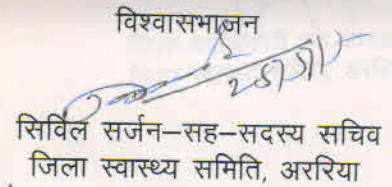 विश्वासभाजन
सिविल सर्जन–सह–सदस्य सचिव
जिला स्वास्थ्य समिति, अररिया